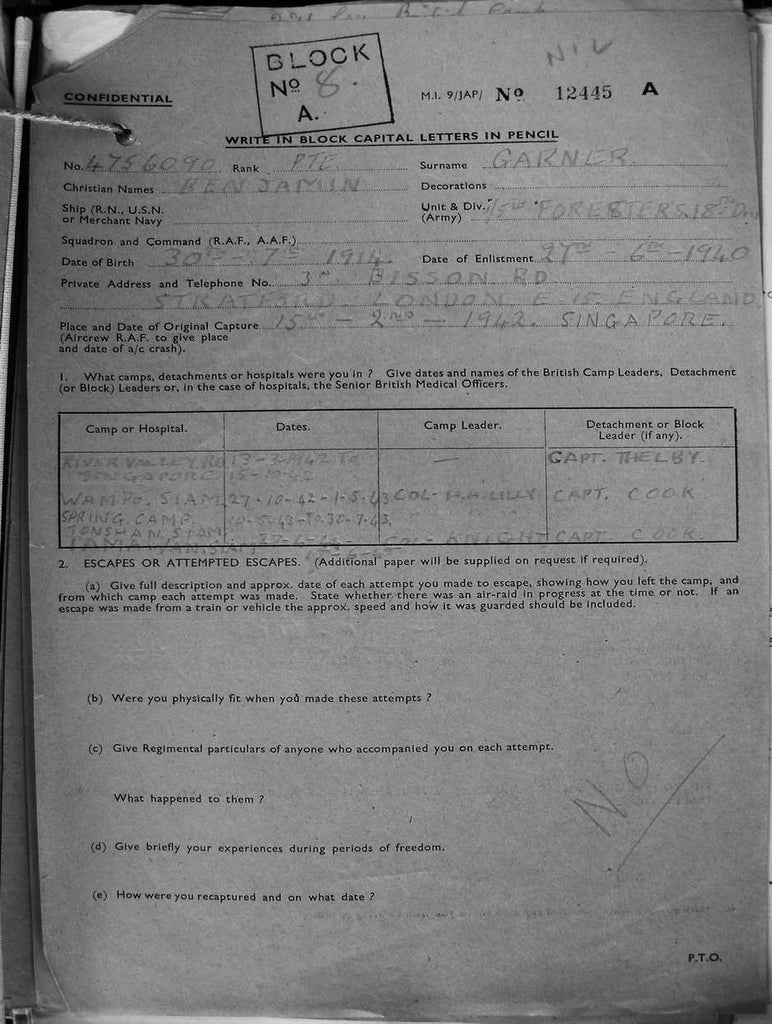 NIL
BLOCK
Nº 8.
A.
CONFIDENTIAL
M.I. 9/JAP/ Nº 12445 A
WRITE IN BLOCK CAPITAL LETTERS IN PENCIL
No. 4756090 Rank PTE. Surname GARNER.
Christian Names BENJAMIN Decorations
Ship (R.N., U.S.N. or Merchant Navy
Unit & Div. (Army) 1/5TH FORESTERS. 18TH DIV
Squadron and Command (R.A.F., A.A.F.)
Date of Birth 30TH - 7TH 1914. Date of Enlistment 27TH - 6TH - 1940
Private Address and Telephone No. 3A. BISSON RD
STRATFORD. LONDON E.15. ENGLAND
Place and Date of Original Capture 15TH - 2ND - 1942. SINGAPORE.
(Aircrew R.A.F. to give place
and date of a/c crash).
1. What camps, detachments or hospitals were you in ? Give dates and names of the British Camp Leaders, Detachment
(or Block) Leaders or, in the case of hospitals, the Senior British Medical Officers.
Camp or Hospital. Dates. Camp Leader. Detachment or Block Leader (if any).
RIVER VALLEY RD 13-3-1942 TO — CAPT. THELBY.
SINGAPORE. 15-10-42
WAMPO. SIAM. 27-10-42-1-5-43 COL. H.H. LILLY. CAPT. COOK
SPRING CAMP. 10-5-43-TO.30-7-43.
TONSHAN. SIAM
SIAM COL. KNIGHT CAPT. COOK.
2. ESCAPES OR ATTEMPTED ESCAPES. (Additional paper will be supplied on request if required).
(a) Give full description and approx. date of each attempt you made to escape, showing how you left the camp, and
from which camp each attempt was made. State whether there was an air-raid in progress at the time or not. If an
escape was made from a train or vehicle the approx. speed and how it was guarded should be included.
(b) Were you physically fit when you made these attempts ?
(c) Give Regimental particulars of anyone who accompanied you on each attempt.
NO
What happened to them ?
(d) Give briefly your experiences during periods of freedom.
(e) How were you recaptured and on what date ?
P.T.O.